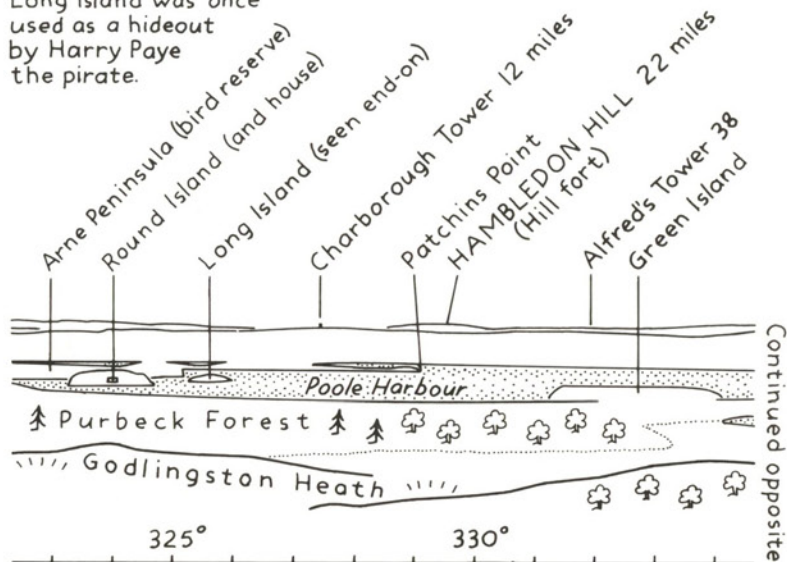 Long Island was once
used as a hideout
by Harry Paye
the pirate.
Arne Peninsula (bird reserve)
Round Island (and house)
Long Island (seen end-on)
Charborough Tower 12 miles
Patchins Point
HAMBLEDON HILL 22 miles
(Hill fort)
Alfred's Tower 38
Green Island
Poole Harbour
Purbeck Forest
Godlingston Heath
325°
330°
Continued opposite